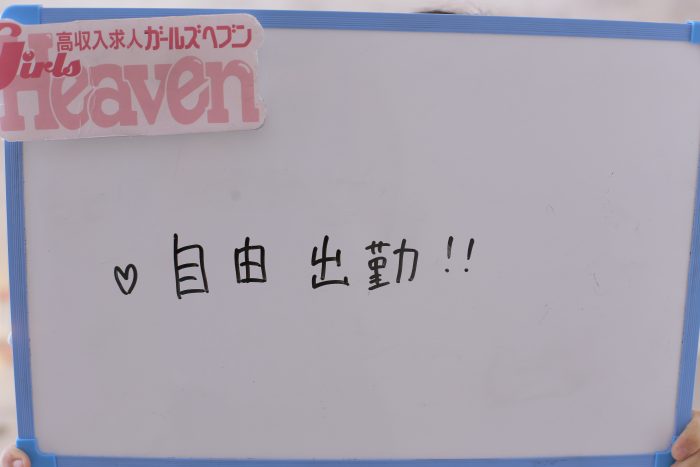 高収入求人ガールズヘブン
Girls
Heaven
♡ 自由 出勤!!